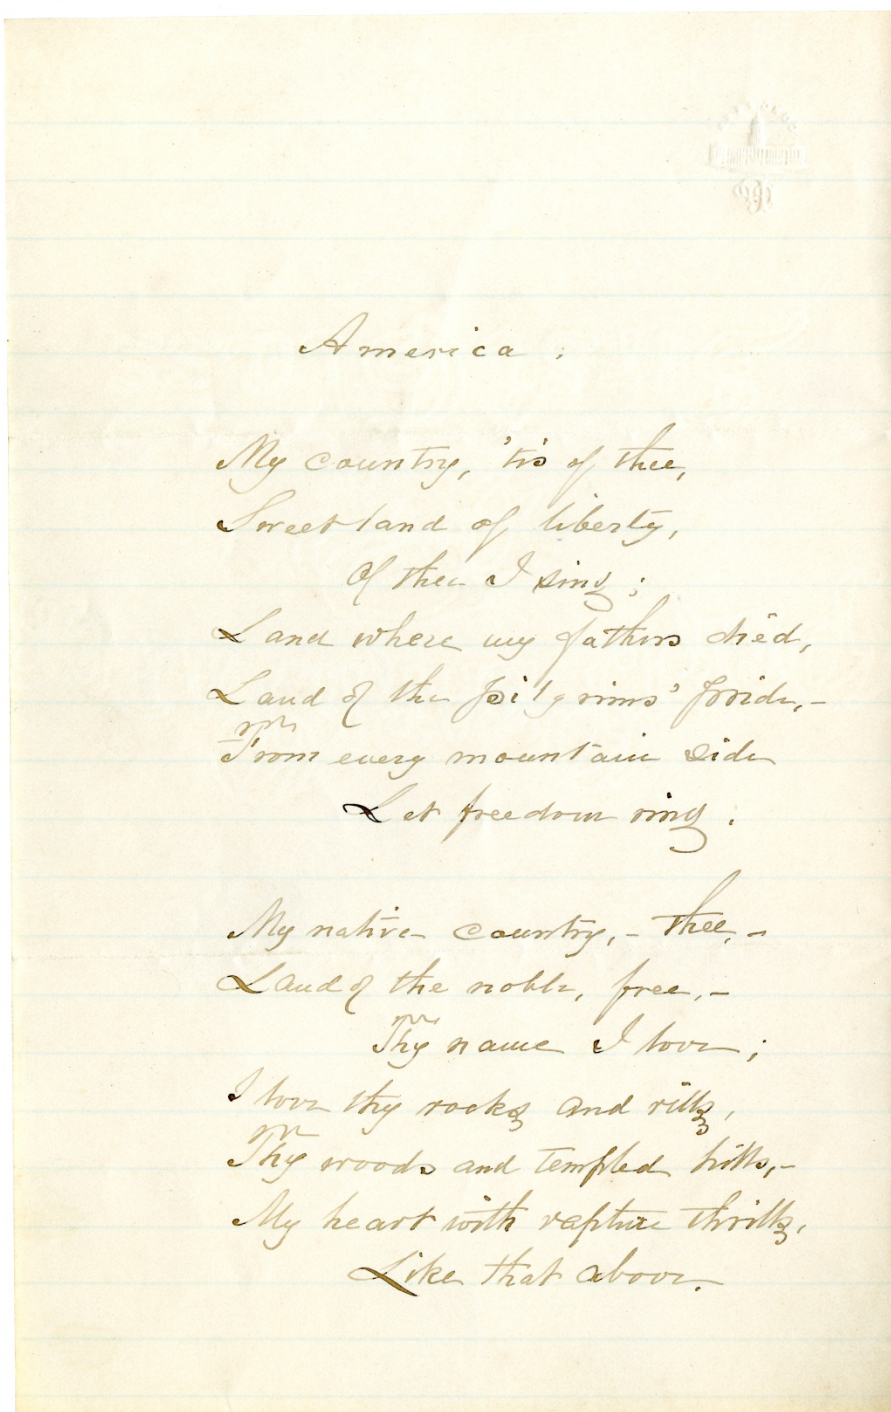 America.
My country, 'tis of thee,
Sweet land of liberty,
Of thee I sing;
Land where my fathers died,
Land of the pilgrims' pride,–
From every mountain side
Let freedom ring.
My native country,– thee,–
Land of the noble, free,–
Thy name I love;
I love thy rocks and rills,
Thy woods and templed hills,–
My heart with rapture thrills,
Like that above.